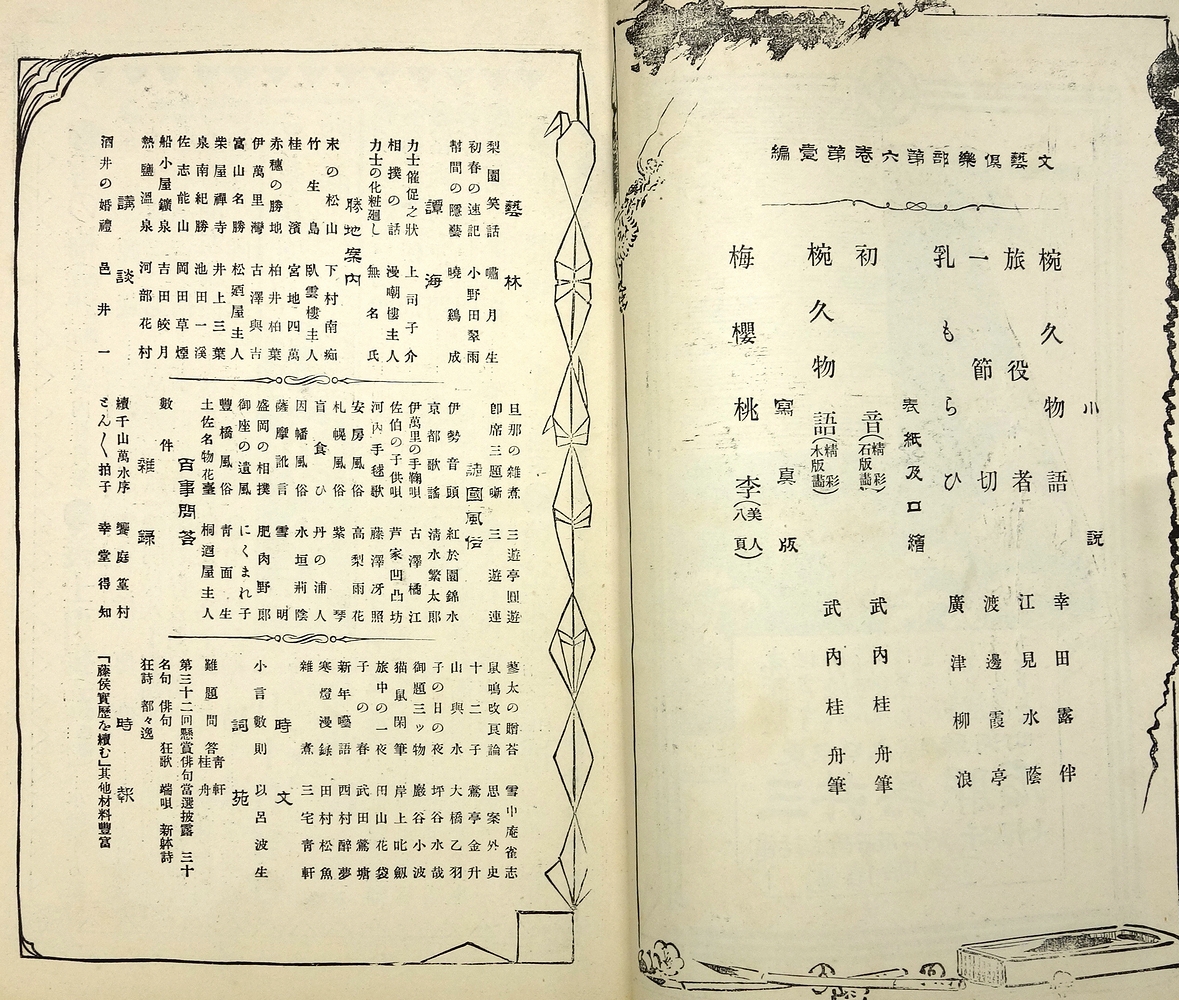 文藝倶樂部第六卷第壹編
小説
椀久物語 幸田露伴
旅役者 江見水蔭
一節切 渡邊霞亭
乳もらひ 廣津柳浪
表紙及口繪
初音(精彩石版畵) 武内桂舟筆
椀久物語(精彩木版畵) 武内桂舟筆
寫眞版
梅櫻桃李(美人八頁)
藝林
梨園笑話 嘯月生
初春の速記 小野田翠雨
幇間の隱藝 曉鷄成
譚海
力士催促之狀 上司子介
相撲の話 漫嘲樓主人
力士の化粧廻し 無名氏
勝地案内
末の松山 下村南痴
竹生島 臥雲樓主人
桂濱 宮地四萬
赤穗の勝地 柏井柏葉
伊萬里灣 古澤與吉
富山名勝 松廼屋主人
柴屋禪寺 井上三葉
泉南紀勝 池田一溪
佐志能山 岡田草煙
船小屋鑛泉 吉田皎月
熱鹽溫泉 河部花村
講談
酒井の婚禮 邑井一
旦那の雜煮 三遊亭圓遊
卽席三題噺 三遊連
諸國風俗
伊勢音頭 紅於園錦水
京都歌謠 淸水繁太郞
伊萬里の手鞠唄 古澤橘江
佐伯の子供唄 芦家凹凸坊
河内手毬歌 藤澤冴照
安房風俗 高梨雨花
札幌風俗 紫琴
盲食ひ 丹の浦人
因幡風俗 水垣荊陰
薩摩訛言 雪明
盛岡の相撲 肥肉野郞
御座の遺風 にくまれ子
豐橋風俗 青面生
土佐名物花臺 桐廼屋主人
百事問答
數件
雜録
續千山萬水序 饗庭篁村
とん〱拍子 幸堂得知
蓼太の贈荅 雪中庵雀志
鼠鳴攻瓦論 思案外史
十二子 鶯亭金升
山與水 大橋乙羽
子の日の夜 坪谷水哉
御題三ッ物 巖谷小波
猫鼠閑筆 岸上𠮟劔
旅中の一夜 田山花袋
子の春 武田鶯塘
新年囈語 西村醉夢
寒燈漫録 田村松魚
雜煮 三宅青軒
時文
小言數則 以呂波生
詞苑
難題問答 青軒 桂舟
第三十二回懸賞俳句當選披露 三十
名句 俳句 狂歌 端唄 新躰詩
狂詩 都々逸
時報
「藤侯實歷を續む」其他材料豐富